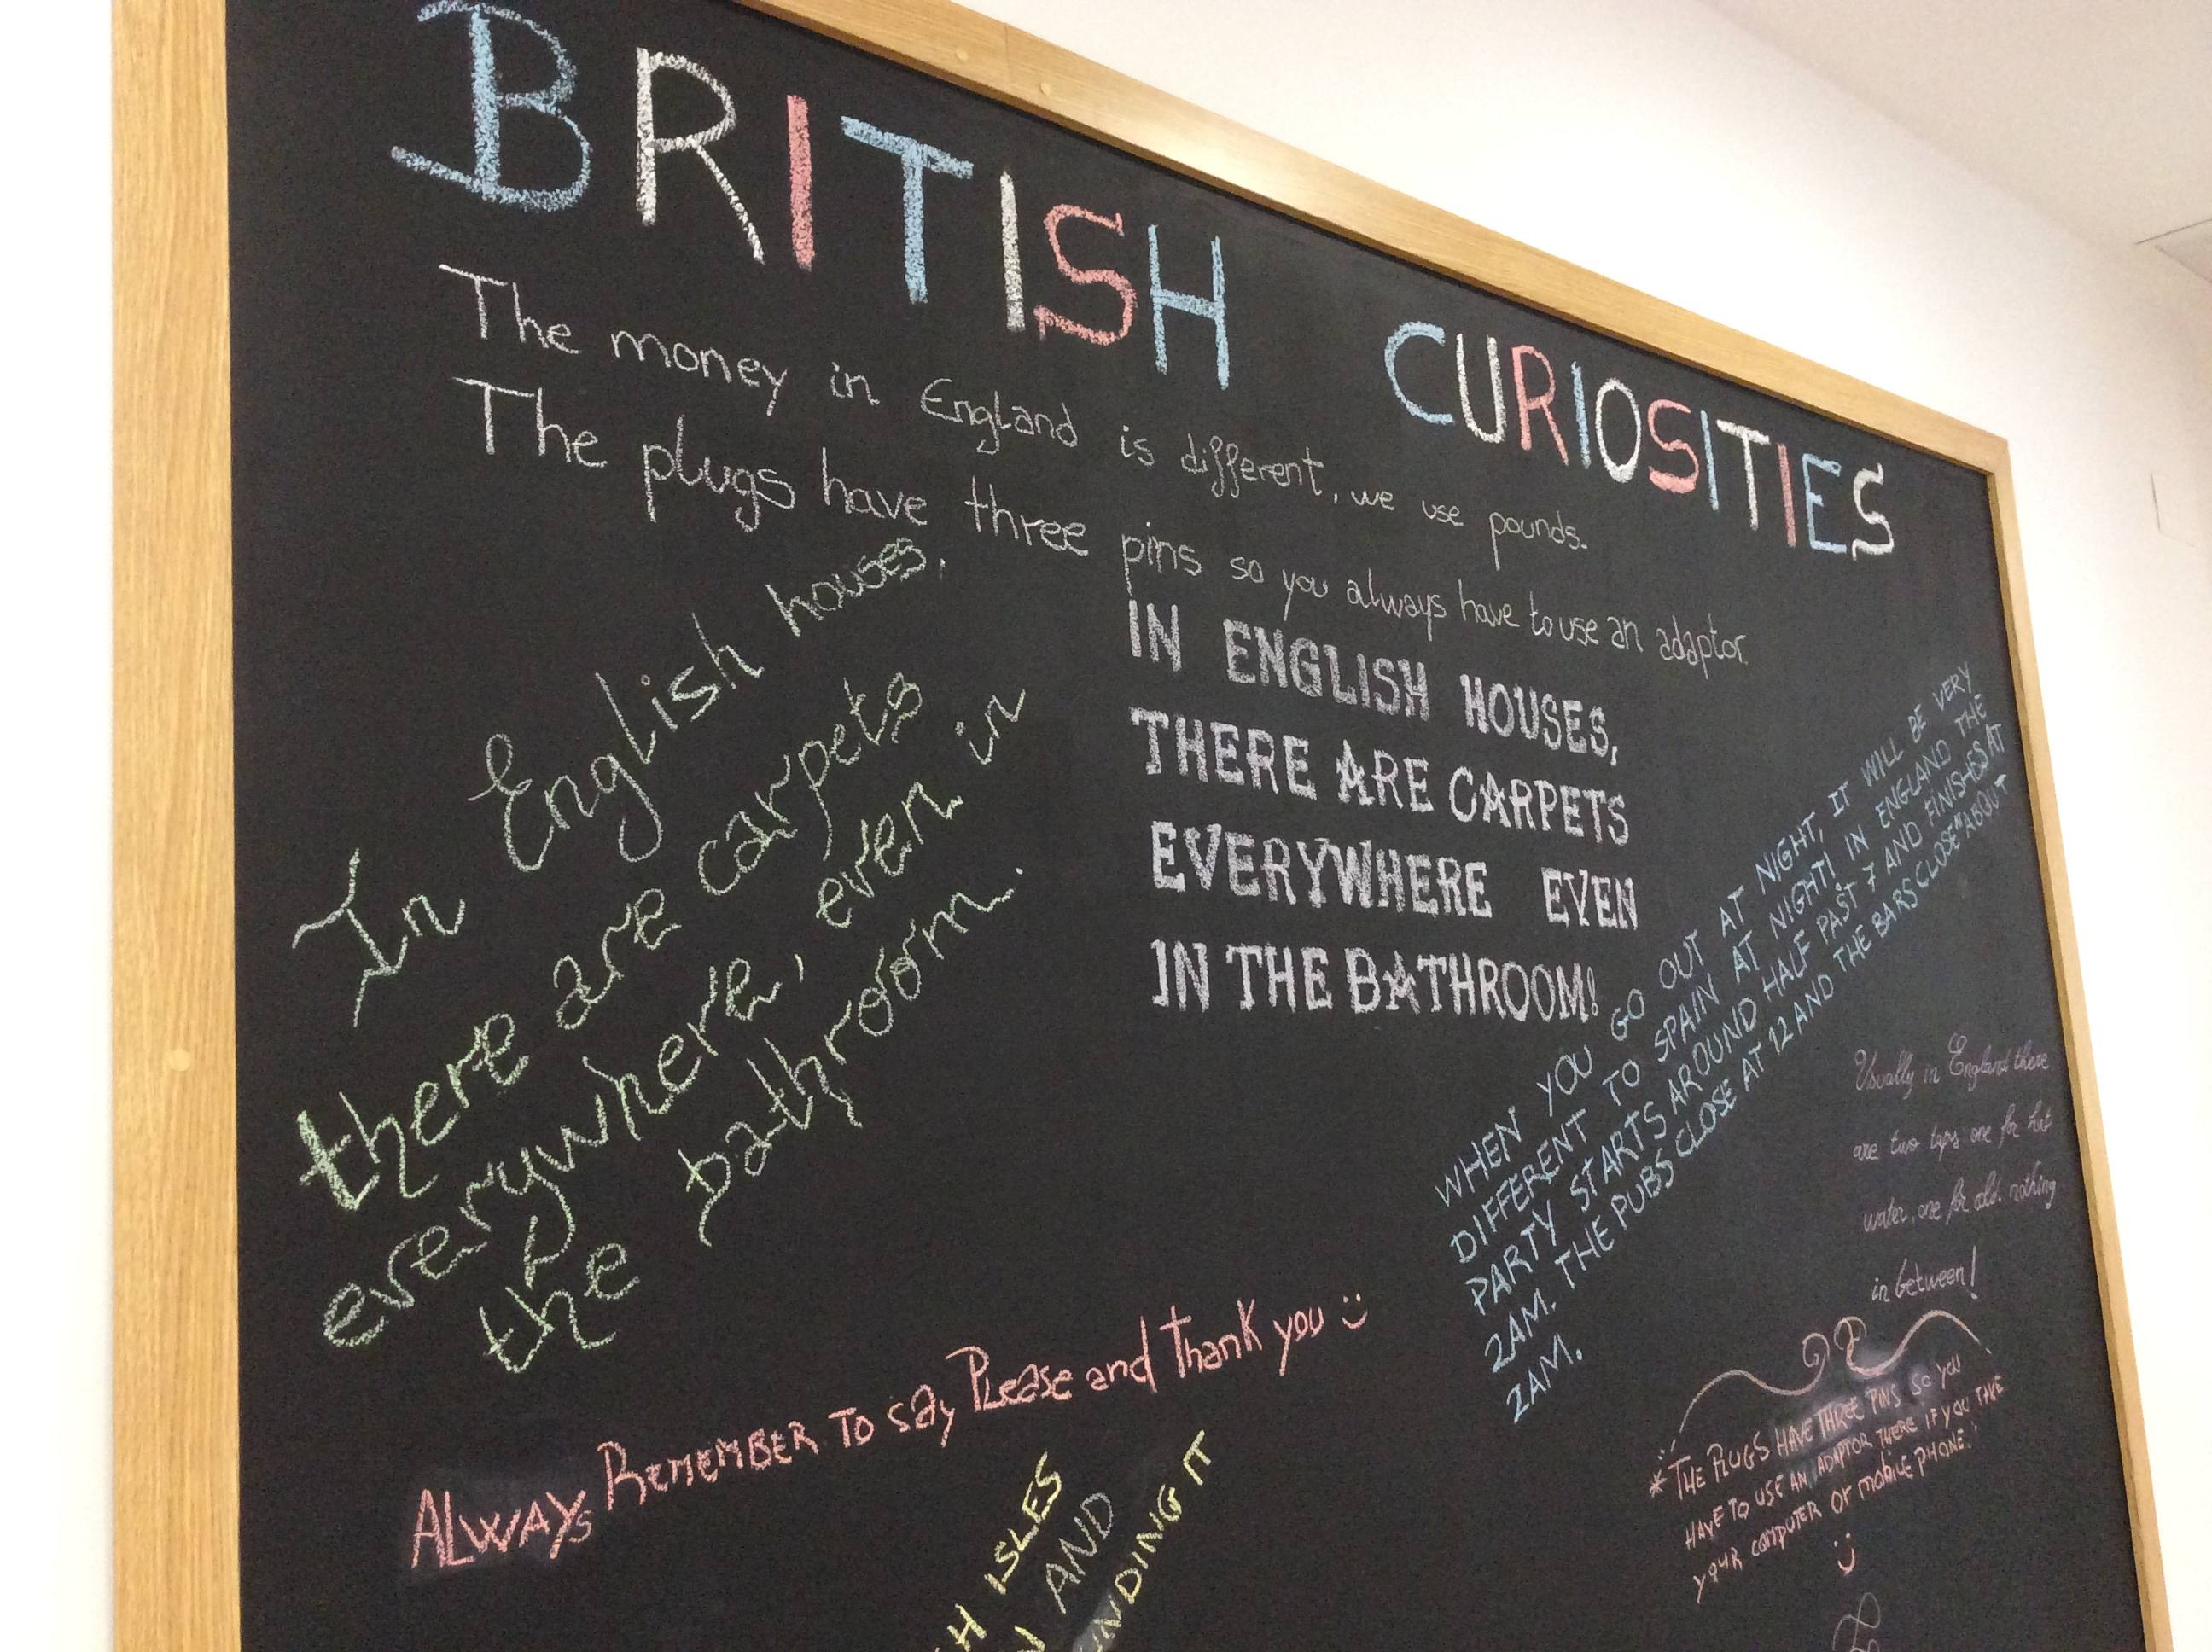 BRITISH CURIOSITIES
The money in England is different, we use pounds.
The plugs have three pins so you always have to use an adaptor.
In English houses,
there are carpets
everywhere, even in
the bathroom.
IN ENGLISH HOUSES,
THERE ARE CARPETS
EVERYWHERE EVEN
IN THE BATHROOM!
WHEN YOU GO OUT AT NIGHT, IT WILL BE VERY
DIFFERENT TO SPAIN AT NIGHT! IN ENGLAND THE
PARTY STARTS AROUND HALF PAST 7 AND FINISHES AT
2AM. THE PUBS CLOSE AT 12 AND THE BARS CLOSE ABOUT
2AM.
Usually in England there
are two taps one for hot
water, one for cold. nothing
in between!
ALWAYS REMEMBER TO SAY PLEASE and Thank you
* THE PLUGS HAVE THREE PINS SO YOU
HAVE TO USE AN ADAPTOR THERE IF YOU TAKE
YOUR COMPUTER OR MOBILE PHONE.
ISLES
AND
IT